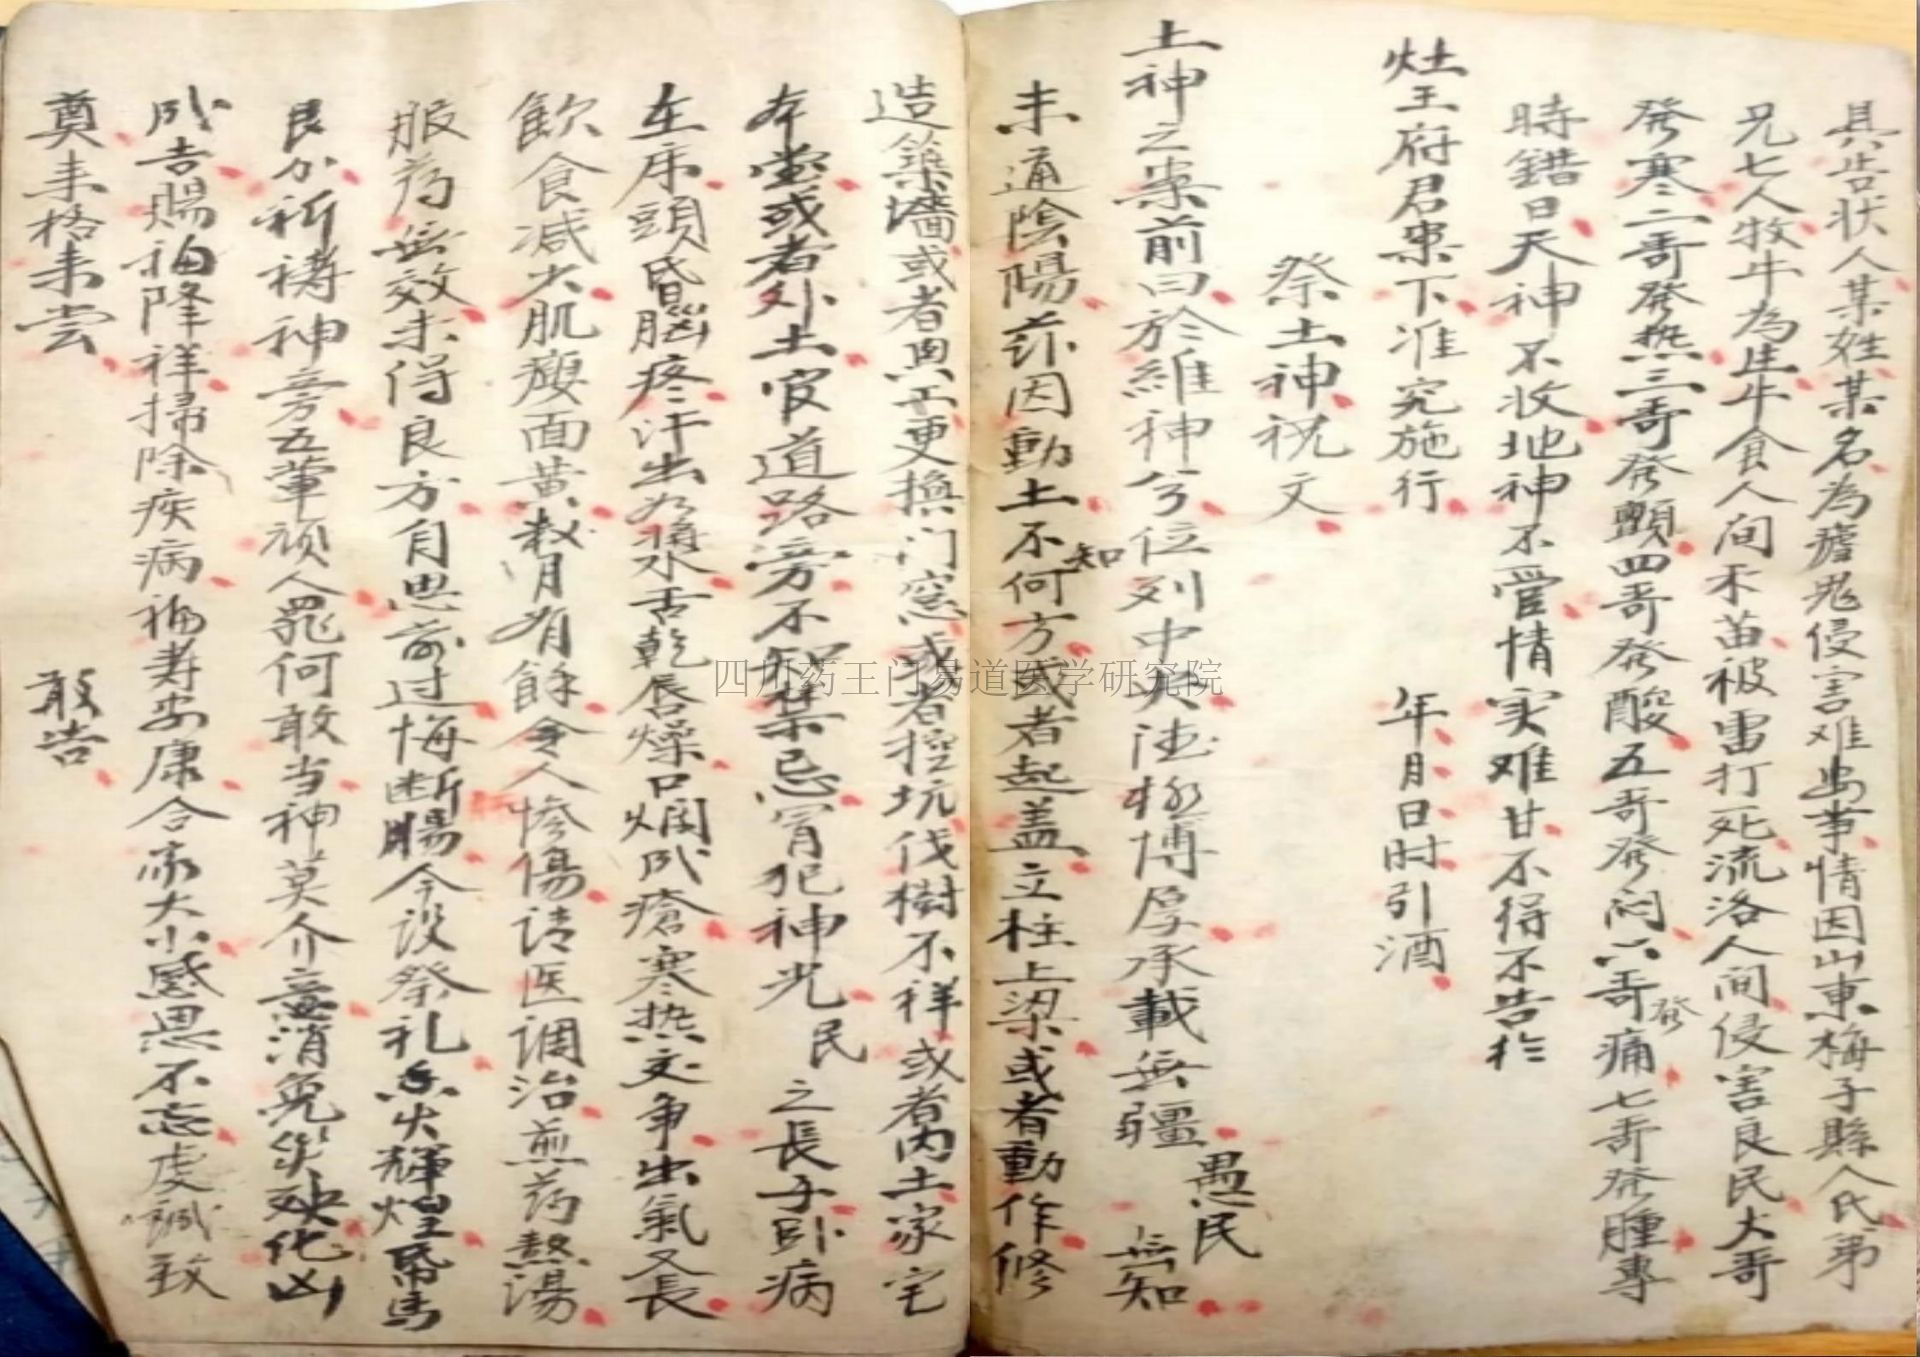 具告状人某姓某名為瘧鬼侵害难安事情因山東梅子縣人氏弟
兄七人牧牛為生牛食人间禾苗被雷打死流洛人间侵害良民大哥
發寒二哥發热三哥發顫四哥發酸五哥發闷六哥發痛七哥發腫專
時錯日天神不收地神不管情实难甘不得不告扵
灶王府君案下准究施行 年月日时引酒
祭土神祝文
土神之案前曰於維神兮位列中央德極博厚承載無疆愚民無知
未通陰陽茲因動土不知何方或者起盖立柱上梁或者動作修
造築墻或者興工更换门窓或者挖坑伐樹不祥或者内土家宅
本堂或者外土官道路旁不知禁忌冐犯神光民之長子卧病
在床頭昏腦疼汗出如漿水舌乾唇燥口爛成瘡寒热交争出氣又長
飲食减少肌瘦面黄数月有餘令人慘傷请医调治煎药熬湯
服药無效未得良方自思前过悔断腸今设祭礼香火輝煌帋馬
良分祈禱神旁五葷頑人罪何敢当神莫介意消免灾殃化凶
成吉賜福降祥掃除疾病福寿安康合家大小感恩不忘虔誠致
奠来格来尝 敢告
四川药王门易道医学研究院